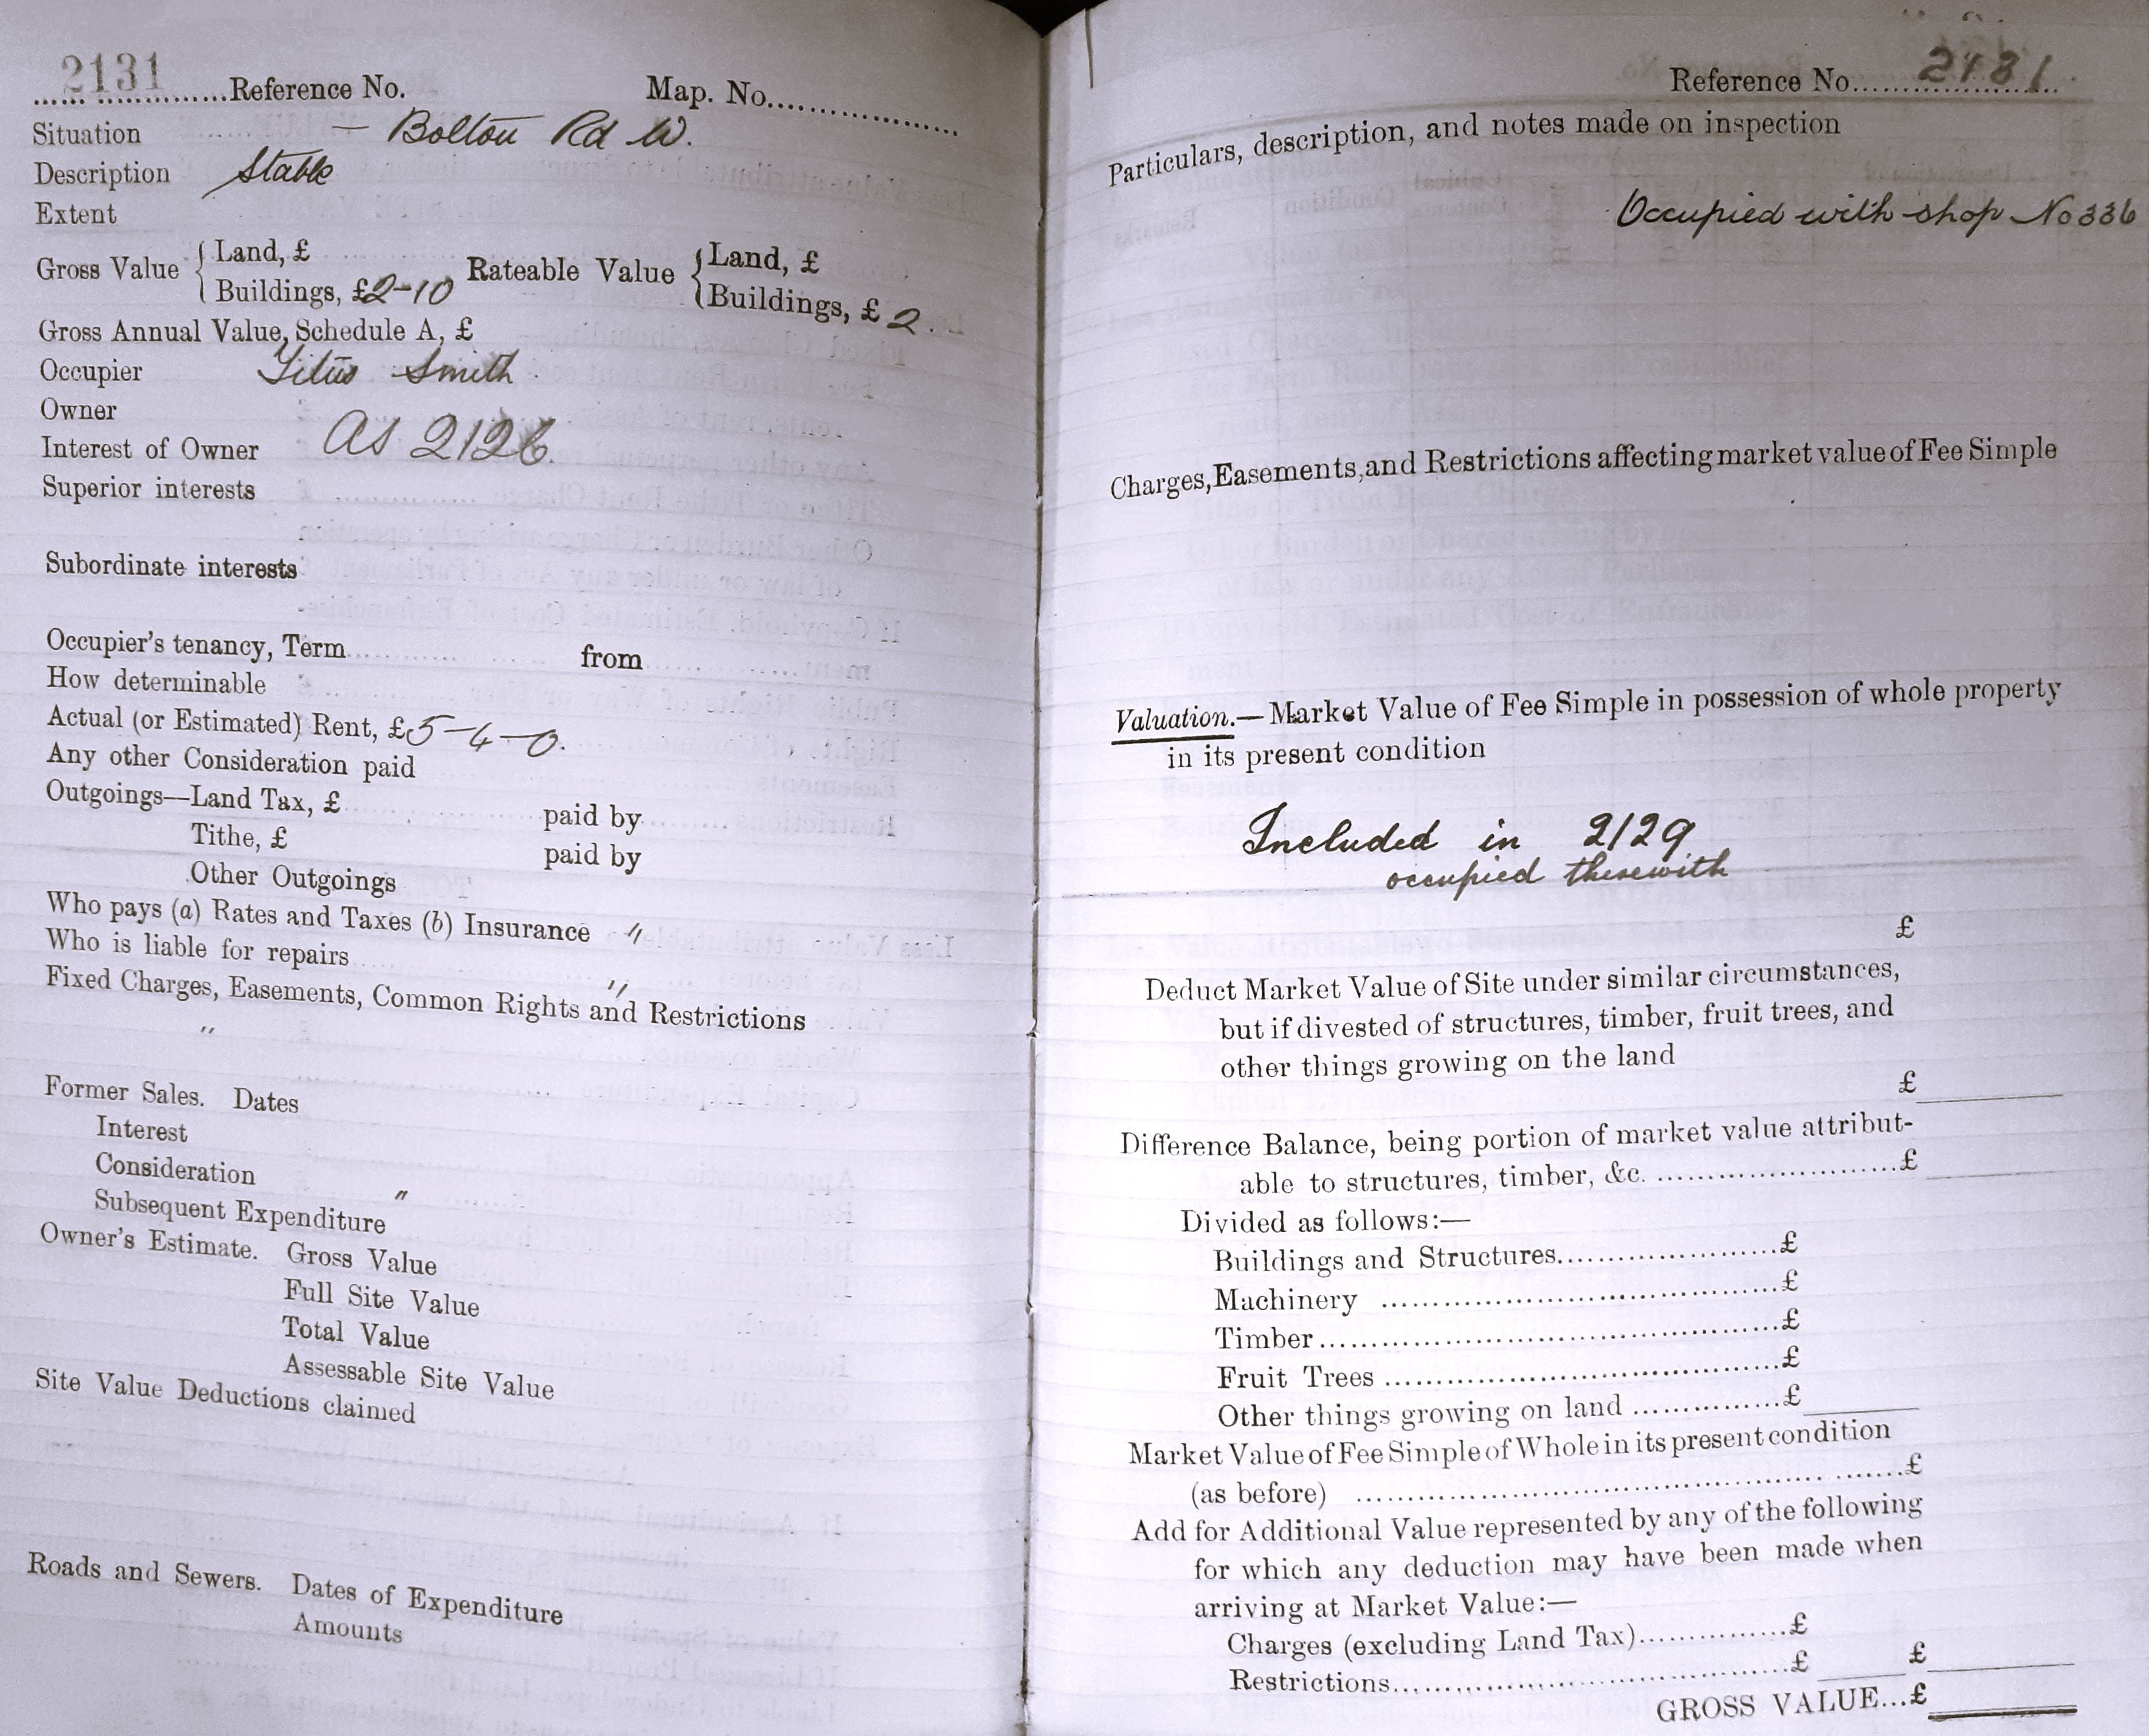 2131 Reference No. Map. No.
Situation — Bolton Rd W.
Description Stable
Extent
Gross Value { Land, £ Rateable Value { Land, £
Buildings, £2-10 Buildings, £2.
Gross Annual Value, Schedule A, £
Occupier Titus Smith
Owner
Interest of Owner As 2126
Superior interests
Subordinate interests
Occupier's tenancy, Term from
How determinable
Actual (or Estimated) Rent, £5-4-0.
Any other Consideration paid
Outgoings—Land Tax, £ paid by
Tithe, £ paid by
Other Outgoings
Who pays (a) Rates and Taxes (b) Insurance "
Who is liable for repairs "
Fixed Charges, Easements, Common Rights and Restrictions
"
Former Sales. Dates
Interest
Consideration "
Subsequent Expenditure
Owner's Estimate. Gross Value
Full Site Value
Total Value
Assessable Site Value
Site Value Deductions claimed
Roads and Sewers. Dates of Expenditure
Amounts
Reference No. 2131
Particulars, description, and notes made on inspection
Occupied with shop No 336
Charges, Easements, and Restrictions affecting market value of Fee Simple
Valuation.—Market Value of Fee Simple in possession of whole property
in its present condition
Included in 2129
occupied therewith
£
Deduct Market Value of Site under similar circumstances,
but if divested of structures, timber, fruit trees, and
other things growing on the land
£
Difference Balance, being portion of market value attribut-
able to structures, timber, &c. £
Divided as follows:—
Buildings and Structures £
Machinery £
Timber £
Fruit Trees £
Other things growing on land £
Market Value of Fee Simple of Whole in its present condition
(as before) £
Add for Additional Value represented by any of the following
for which any deduction may have been made when
arriving at Market Value:—
Charges (excluding Land Tax) £
Restrictions £ £
GROSS VALUE...£